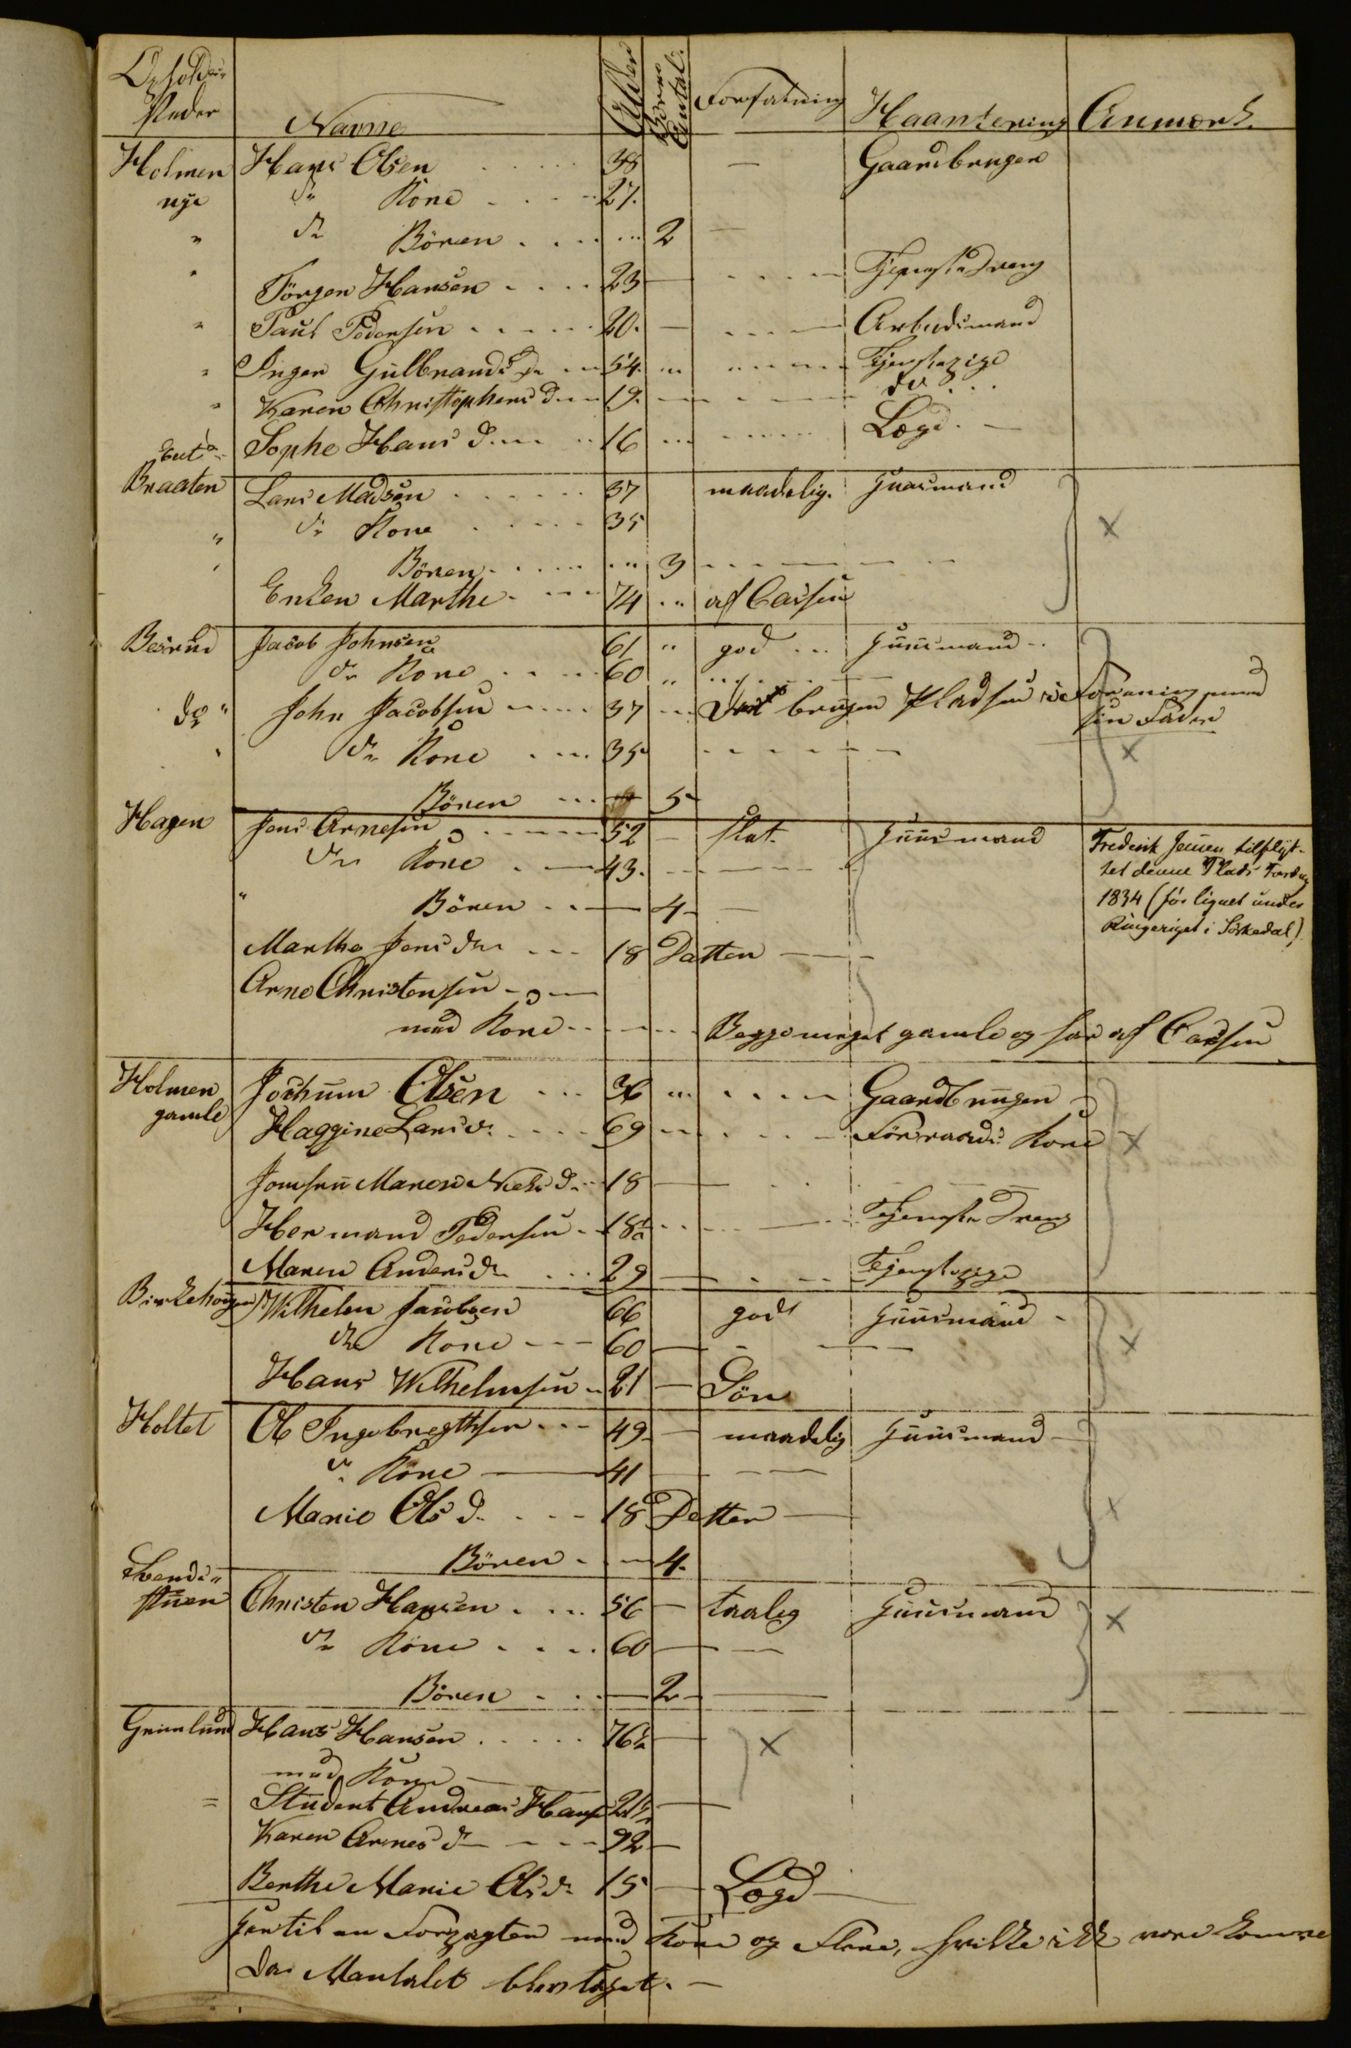 Opholds-
steder Navne Alder Börne Antal. Forfatning Haantering Anmærk.
Holmen Hans Olsen 38 — Gaardbruger
nye dr Kone 27.
" dr Börn 2 —
" Jörgen Hansen 23 — Tjenestedreng
" Paul Pedersen 20. — Arbeidsmand
" Inger Gulbrands dr 54. Tjenestepige
" Karen Christophers d 19. do
Sophe Hans d 16 Lægd. —
Braaten Lars Madsen 37 maadelig. Huusmand
" dr Kone 35 x
Börn 3
Enken Marthe 74 af Cassen
Besrud Jacob Johnsen 61 " god Huusmand
dr Kone 60 "
do " John Jacobsen 37 bruger Pladsen i Forening med
sin Fader
dr Kone 35. x
Börn 5
Hagen Jens Arnesen 52 — slet. Huusmand
dr Kone 43.
" Börn 4 —
Frederik Jensen tilflyt-
tet denne Plads Fardag
1834 (før lignet under
Ringeriget i Sörkedal)
Marthe Jens dr 18 Datter
Arne Christensen
med Kone Begge meget gamle og faar af Cassen
Holmen Jochum Olsen 36 Gaardbruger
gamle Haggine Lars d. 69 Föraads Kone x
Jomfru Maren Niels d. 18 —
Hermand Pedersen 18 Tjeneste Dreng
Maren Anders dr 29 — Tjenestepige
Birkehougen Wilhelm Jacobsen 66 godt Huusmand
dr Kone 60 — x
Hans Wilhelmsen 21 — Sön
Holtet Ole Ingebregthsen 49. — maadelig Huusmand
dr Kone 41
Marie Ols d. 18 Datter x
Börn 4.
stuen Christen Hansen 56 — taalig Huusmand x
dr Kone 60 —
Börn 2
Grimlund Hans Hansen 76½ — x
med Kone
= Student Andreas Hansen 21½ —
Karen Arnes d 92 —
Berthe Marie Ols d. 15 — Lægd
Hertil en Forpagter med Kone og Flere, hvilke ikke vare komne
da Mantalet blev taget. —